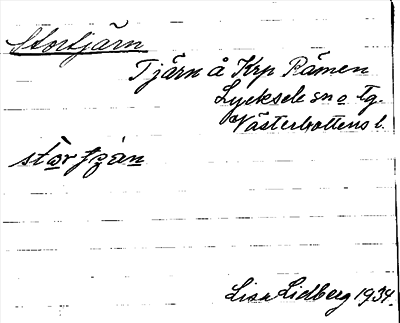 Stortjärn
Tjärn å Krp Råmen
Lycksele sn o Tg.
Västerbottens l.
stòr
Lisa Lidberg 1934.